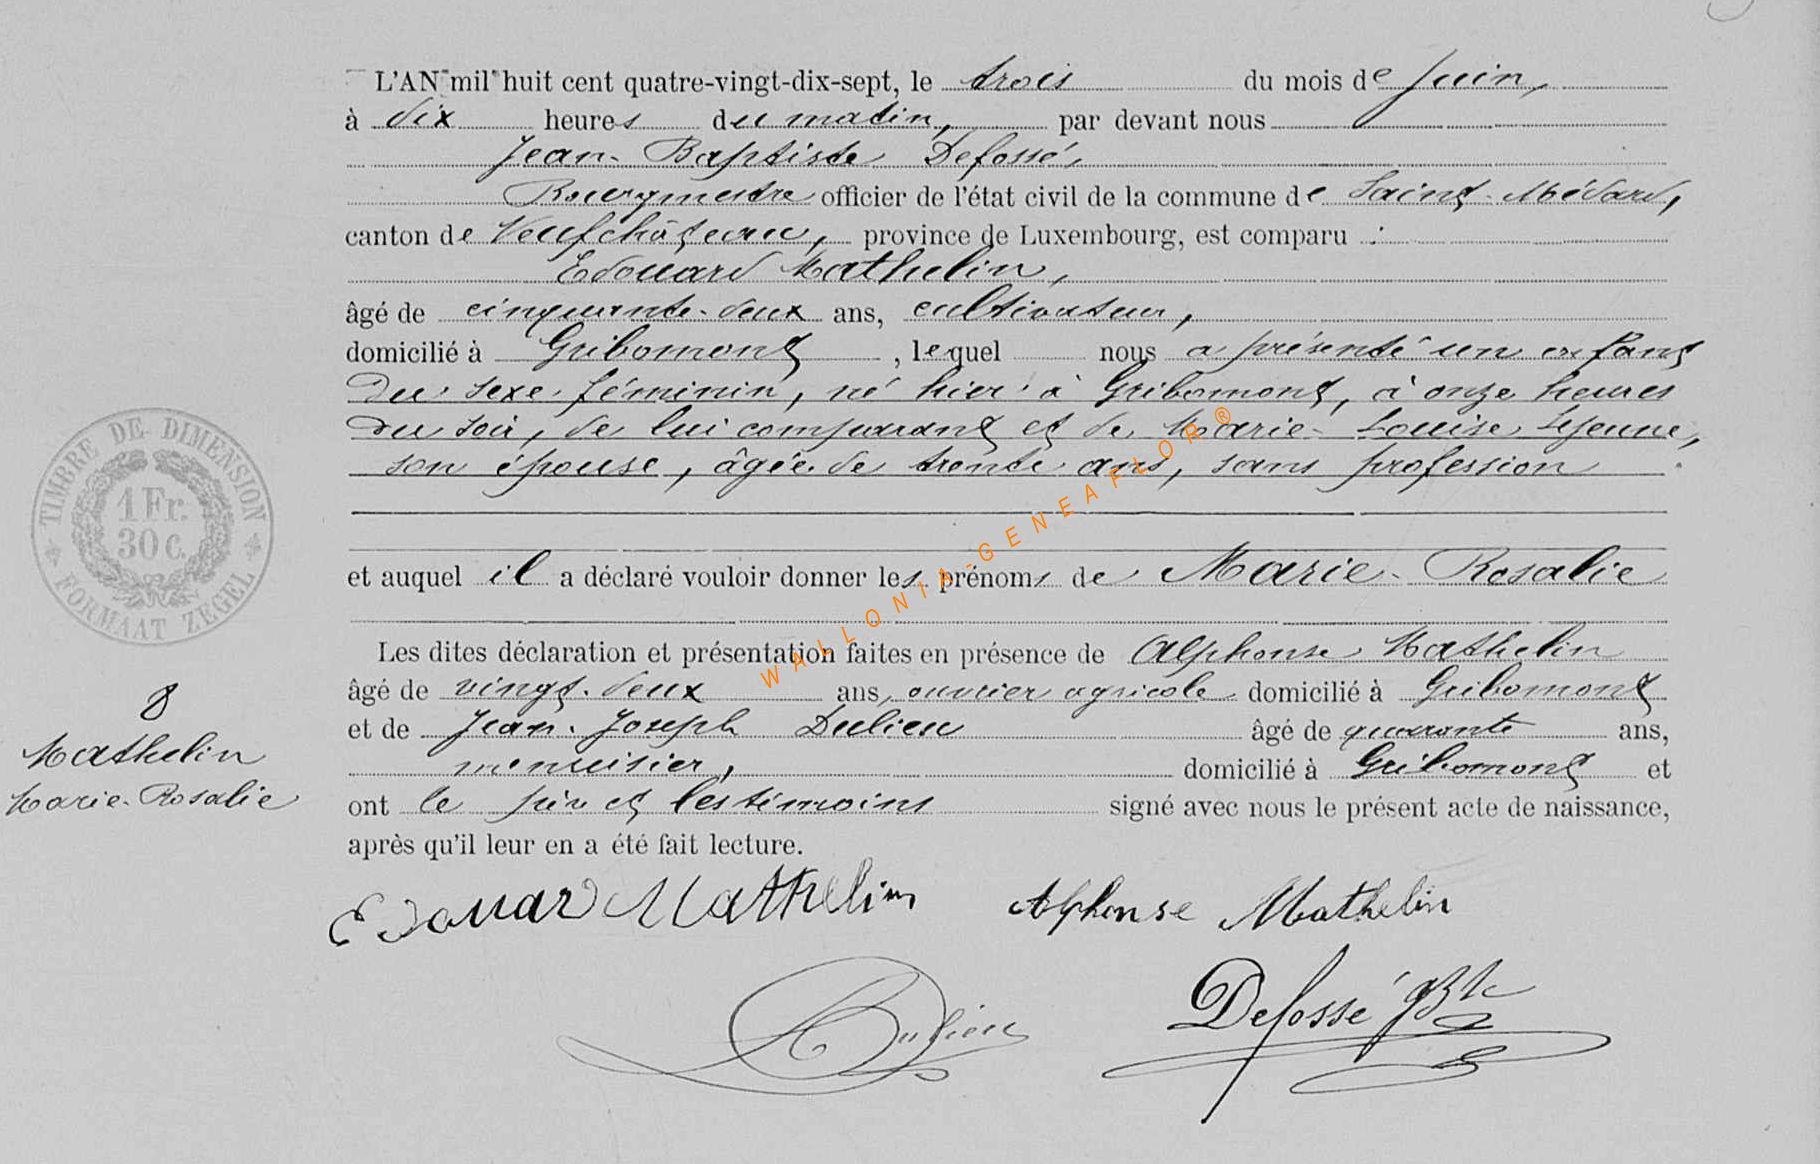 L'AN mil huit cent quatre-vingt-dix-sept, le trois du mois de Juin,
à dix heures du matin, par devant nous
Jean-Baptiste Defossé,
Bourgmestre officier de l'état civil de la commune de Saint-Médard,
canton de Neufchâteau, province de Luxembourg, est comparu :
Edouard Mathelin,
âgé de cinquante-deux ans, cultivateur,
domicilié à Gribomont, lequel nous a présenté un enfant
du sexe féminin, né hier à Gribomont, à onze heures
du soir, de lui comparant et de Marie-Louise Lejeune,
son épouse, âgée de trente ans, sans profession
et auquel il a déclaré vouloir donner les prénoms de Marie-Rosalie
Les dites déclaration et présentation faites en présence de Alphonse Mathelin
âgé de vingt-deux ans, ouvrier agricole domicilié à Gribomont
et de Jean-Joseph Dulieu âgé de quarante ans,
menuisier, domicilié à Gribomont et
ont le père et les témoins signé avec nous le présent acte de naissance,
après qu'il leur en a été fait lecture.
Edouard Mathelin Alphonse Mathelin
Dulieu Defossé JBte
TIMBRE DE DIMENSION
1 Fr.
30 C.
FORMAAT ZEGEL
8
Mathelin
Marie-Rosalie
WALLONIA-GENEAFLOR®